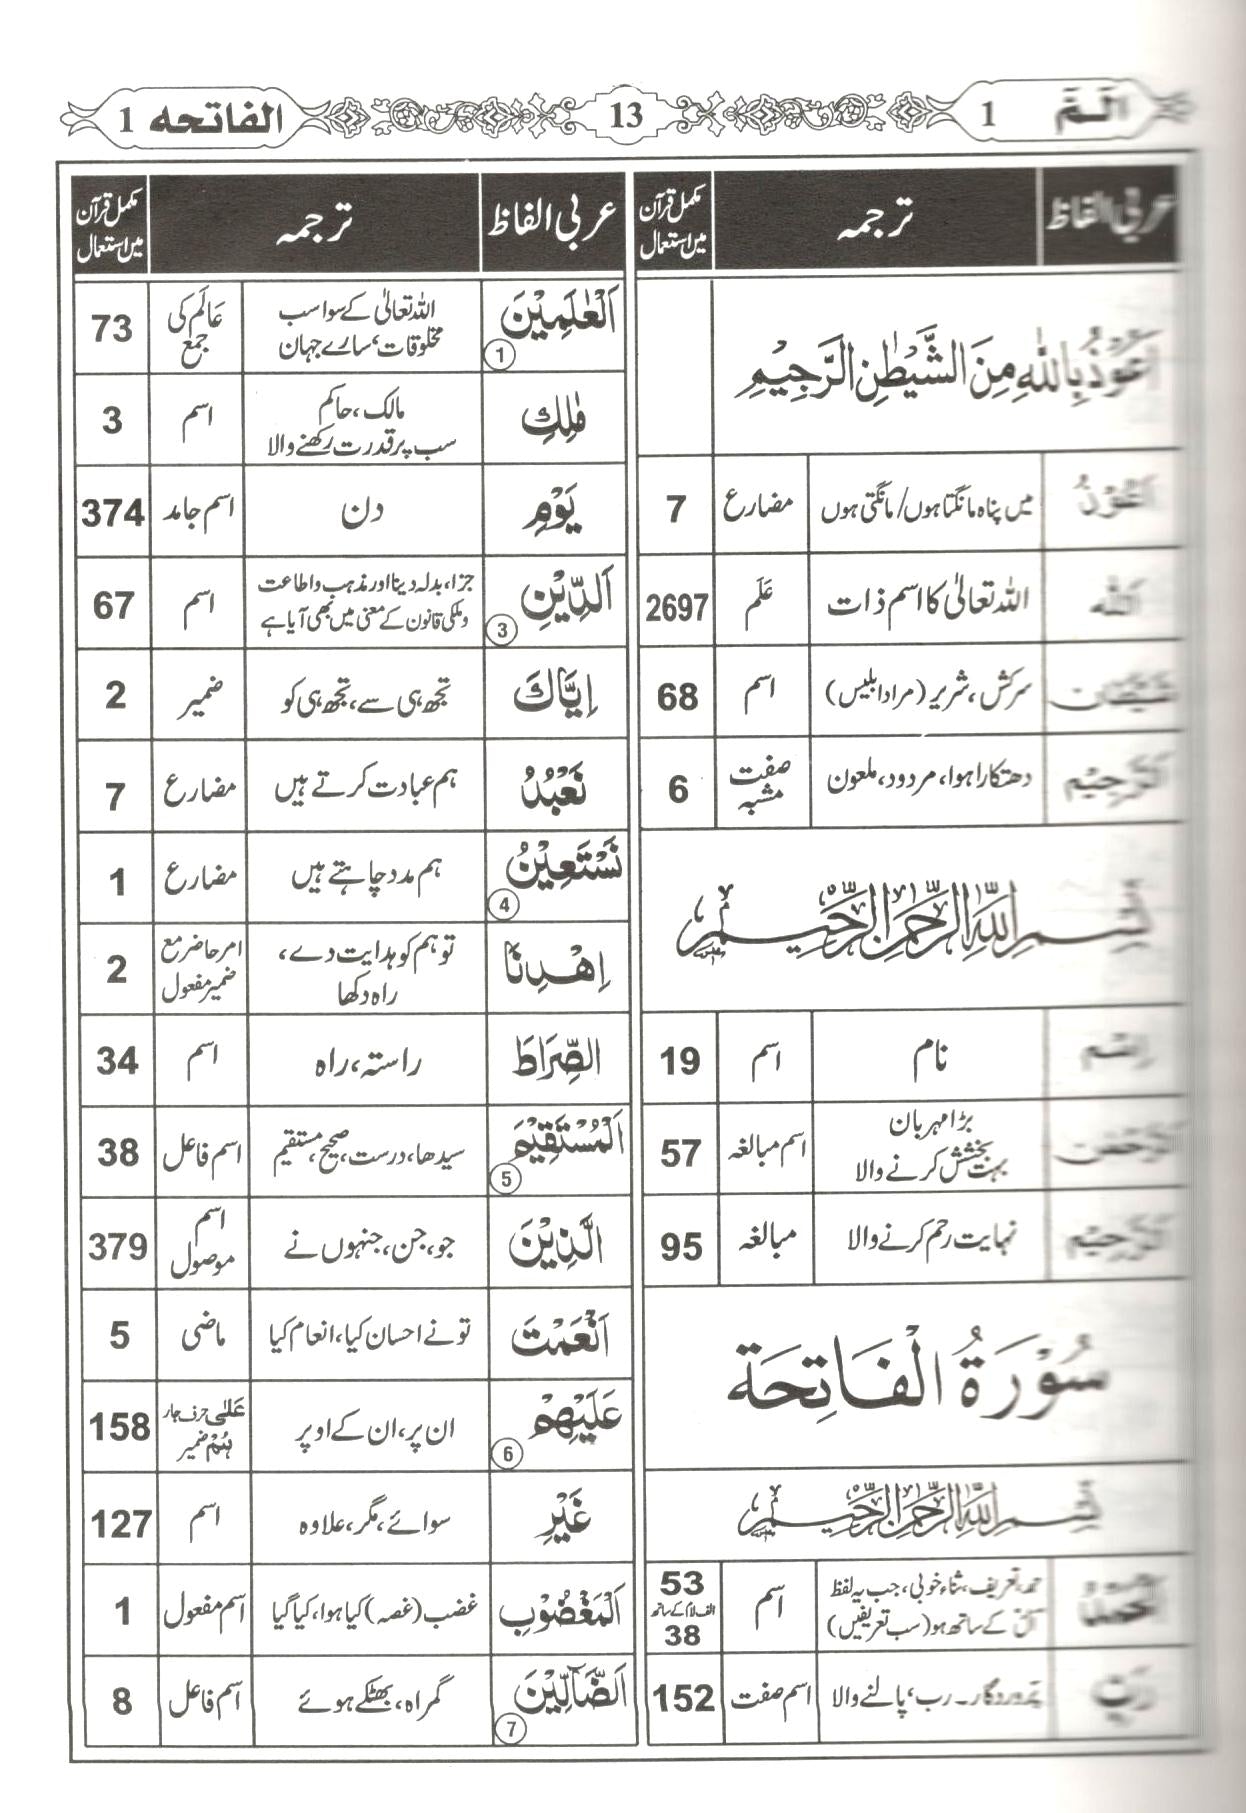 الٓمّٓ 1
13
الفاتحہ 1
عربی الفاظ ترجمہ مکمل قرآن میں استعمال
اَعُوْذُ بِاللّٰهِ مِنَ الشَّیْطٰنِ الرَّجِیْمِ
اَعُوْذُ میں پناہ مانگتا ہوں/مانگتی ہوں مضارع 7
اَللّٰه اللہ تعالیٰ کا اسم ذات عَلَم 2697
شَیْطَان سرکش، شریر (مراد ابلیس) اسم 68
اَلرَّجِیْم دھتکارا ہوا، مردود، ملعون صفت مشبہ 6
بِسْمِ اللّٰهِ الرَّحْمٰنِ الرَّحِیْمِ
اِسْم نام اسم 19
اَلرَّحْمٰن بڑا مہربان
بہت بخشش کرنے والا اسم مبالغہ 57
اَلرَّحِیْم نہایت رحم کرنے والا مبالغہ 95
سُوْرَةُ الْفَاتِحَة
بِسْمِ اللّٰهِ الرَّحْمٰنِ الرَّحِیْمِ
اَلْحَمْدُ حمد، تعریف، ثناء خوبی، جب یہ لفظ
اَلْ کے ساتھ ہو (سب تعریفیں) اسم 53
الف لام کے ساتھ
38
رَبِّ پروردگار۔ رب، پالنے والا اسم صفت 152
عربی الفاظ ترجمہ مکمل قرآن میں استعمال
اَلْعٰلَمِیْنَ 1 اللہ تعالیٰ کے سوا سب
مخلوقات، سارے جہان عَالَم کی جمع 73
مٰلِكِ مالک، حاکم
سب پر قدرت رکھنے والا اسم 3
یَوْمِ دن اسم جامد 374
اَلدِّیْنِ 3 جزا، بدلہ دینا اور مذہب و اطاعت
و ملکی قانون کے معنی میں بھی آیا ہے اسم 67
اِیَّاكَ تجھ ہی سے، تجھ ہی کو ضمیر 2
نَعْبُدُ ہم عبادت کرتے ہیں مضارع 7
نَسْتَعِیْنُ 4 ہم مدد چاہتے ہیں مضارع 1
اِهْدِنَا تو ہم کو ہدایت دے،
راہ دکھا امر حاضر مع ضمیر مفعول 2
الصِّرَاطَ راستہ، راہ اسم 34
اَلْمُسْتَقِیْمَ 5 سیدھا، درست، صحیح، مستقیم اسم فاعل 38
الَّذِیْنَ جو، جن، جنہوں نے اسم موصول 379
اَنْعَمْتَ تو نے احسان کیا، انعام کیا ماضی 5
عَلَیْهِمْ 6 ان پر، ان کے اوپر عَلٰی حرف جار
هُمْ ضمیر 158
غَیْرِ سوائے، مگر، علاوہ اسم 127
اَلْمَغْضُوْبِ غضب (غصہ) کیا ہوا، کیا گیا اسم مفعول 1
اَلضَّآلِّیْنَ 7 گمراہ، بھٹکے ہوئے اسم فاعل 8